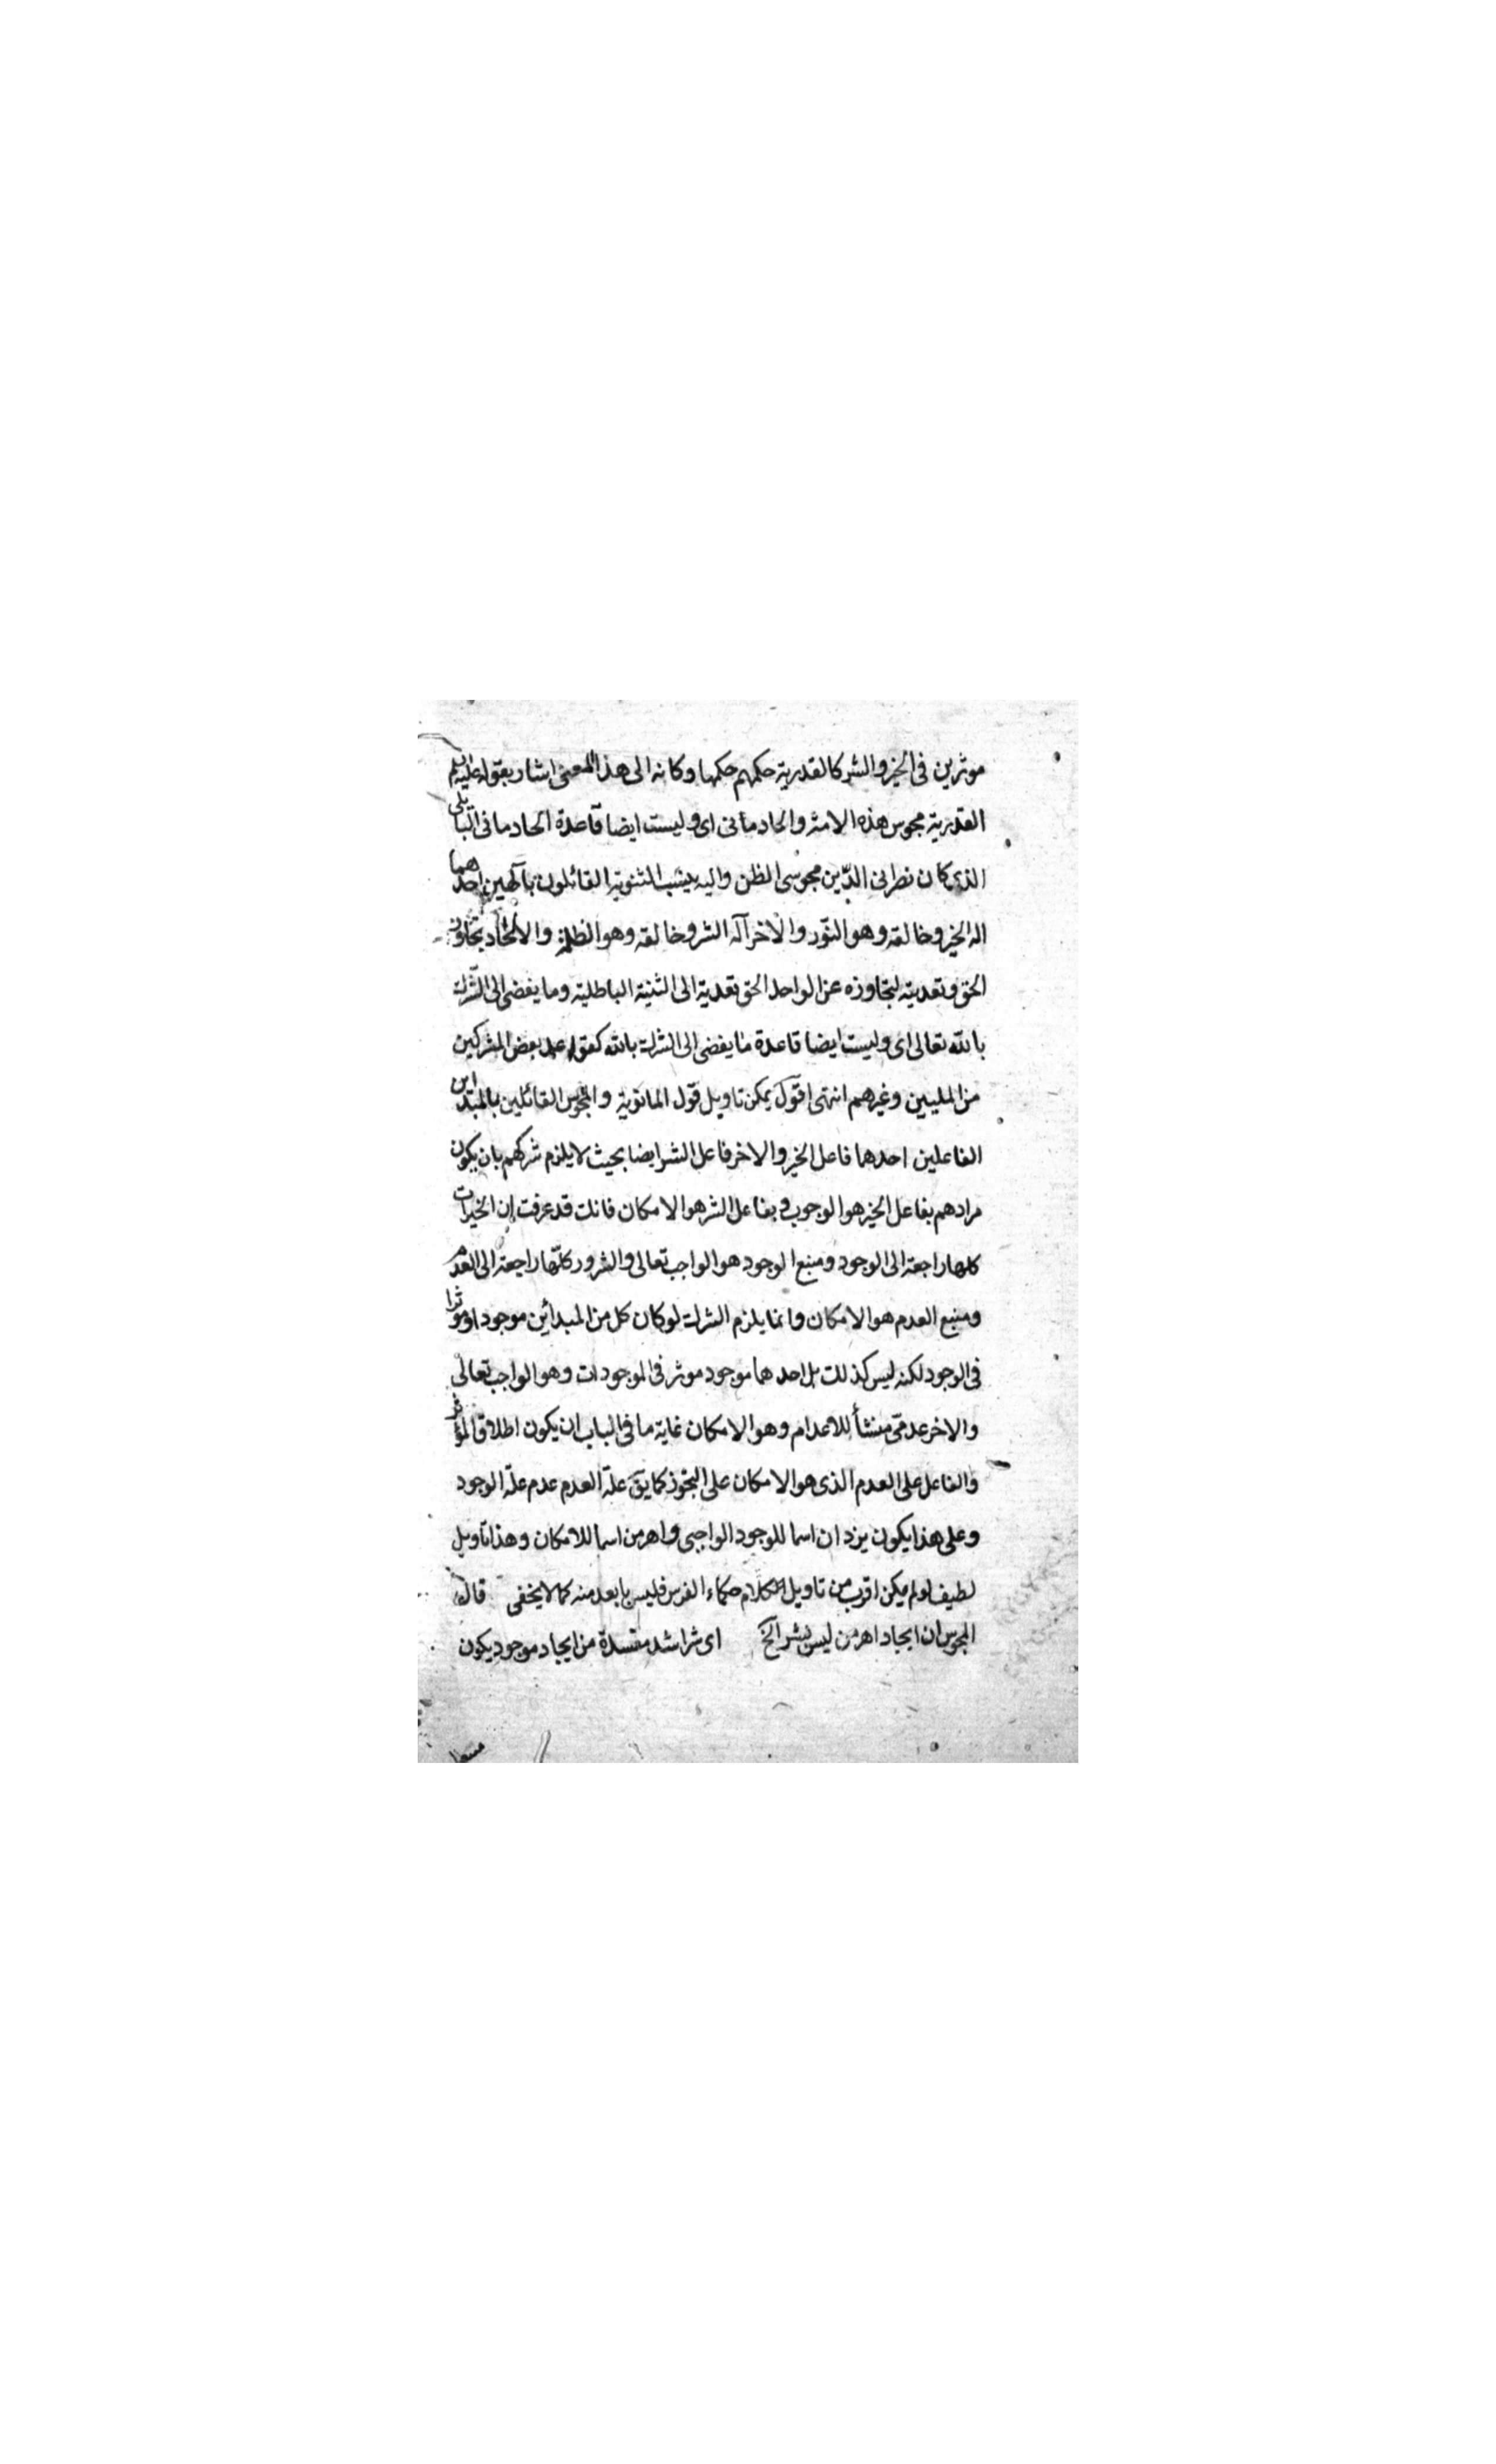 موثرين فى الخير والشر كالقدرية حكمهم حكمها وكانه الى هذا المعنى اشار بقوله عليه
القدرية مجوس هذه الامة والحاد مانى اى وليست ايضا قاعدة الحاد مانى البابلى
الذى كان نصرانى الدّين مجوسى الظن واليه ينسب الثنوية القائلون بآلهين احدهما
اله الخير وخالقه وهو النّور والاخر آله الشر وخالقه وهو الظلمة والالحاد تجاوز
الحق وتعديته لتجاوزه عن الواحد الحق تعدية الى الثنية الباطلية وما يفضى الى الشّرك
بالله تعالى اى وليست ايضا قاعدة ما يفضى الى الشرك بالله كقول بعض المشركين
من المليين وغيرهم انتهى اقول يمكن تاويل قول المانوية والمجوس القائلين بالمبتدأين
الفاعلين احدهما فاعل الخير والاخر فاعل الشر ايضا بحيث لا يلزم شركهم بان يكون
مرادهم بفاعل الخير هو الوجوب وبفاعل الشر هو الامكان فانك قد عرفت إن الخيرات
كلها راجعة الى الوجود ومنبع الوجود هو الواجب تعالى والشرور كلّها راجعة الى العدم
ومنبع العدم هو الامكان وانما يلزم الشرك لو كان كل من المبدائين موجودا وموثرا
فى الوجود لكنه ليس كذلك بل احدهما موجود موثر فى الموجودات وهو الواجب تعالى
والاخر عدمّى منشأ للاعدام وهو الامكان غاية ما فى الباب ان يكون اطلاق المؤثر
والفاعل على العدم الذى هو الامكان على التجوّز كما يق علّة العدم عدم علّة الوجود
وعلى هذا يكون يزدان اسما للوجود الواجبى واهرمن اسما للامكان وهذا تاويل
لطيف لو لم يكن اقرب من تاويل كلام حكماء الفرس فليس بابعد منه كما لا يخفى قال
المجوس ان ايجاد اهرمن ليس بشر الخ اى شرا شد مفسدة من ايجاد موجود يكون